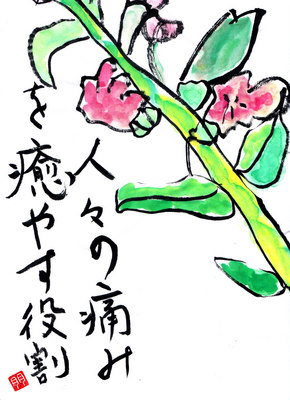 人々の痛み
を癒やす役割
明